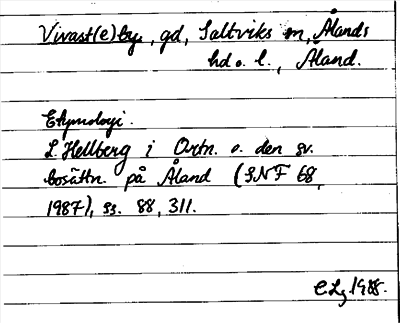 Vivast(e)by, gd, Saltviks sn, Ålands
hd o. l., Åland.
Etymologi.
L. Hellberg i Ortn. o. den sv.
bosättn. på Åland (SNF 68,
1987), ss. 88, 311.
1988.